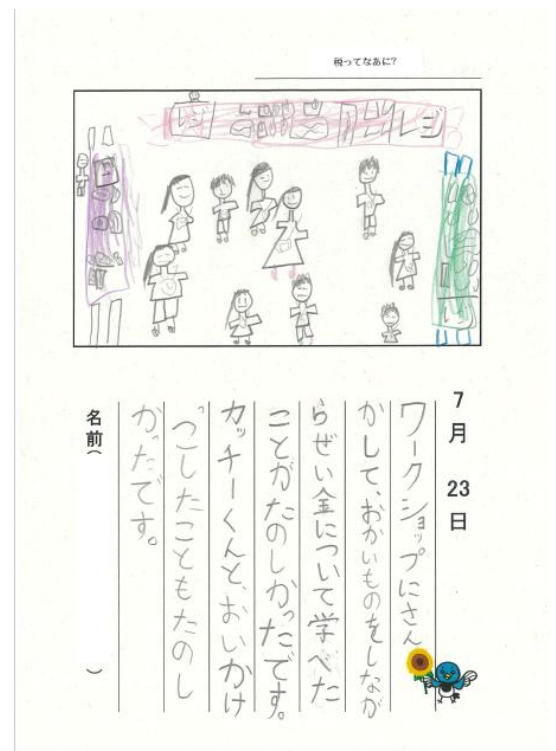 税ってなあに?
レジ
レジ
7月 23日
ワークショップにさん
かして、おかいものをしなが
らぜい金について学べた
ことがたのしかったです。
カッチーくんと、おいかけ
っこしたこともたのし
かったです。
名前( )